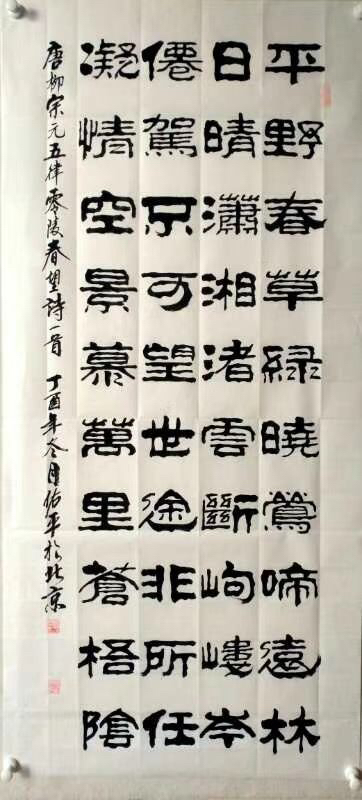 平野春草綠曉鶯啼遠林
日晴瀟湘渚雲斷岣嶁岑
僊駕不可望世途非所任
凝情空景慕萬里蒼梧陰
唐柳宗元五律零陵春望詩一首 丁酉年冬月佑平於北京